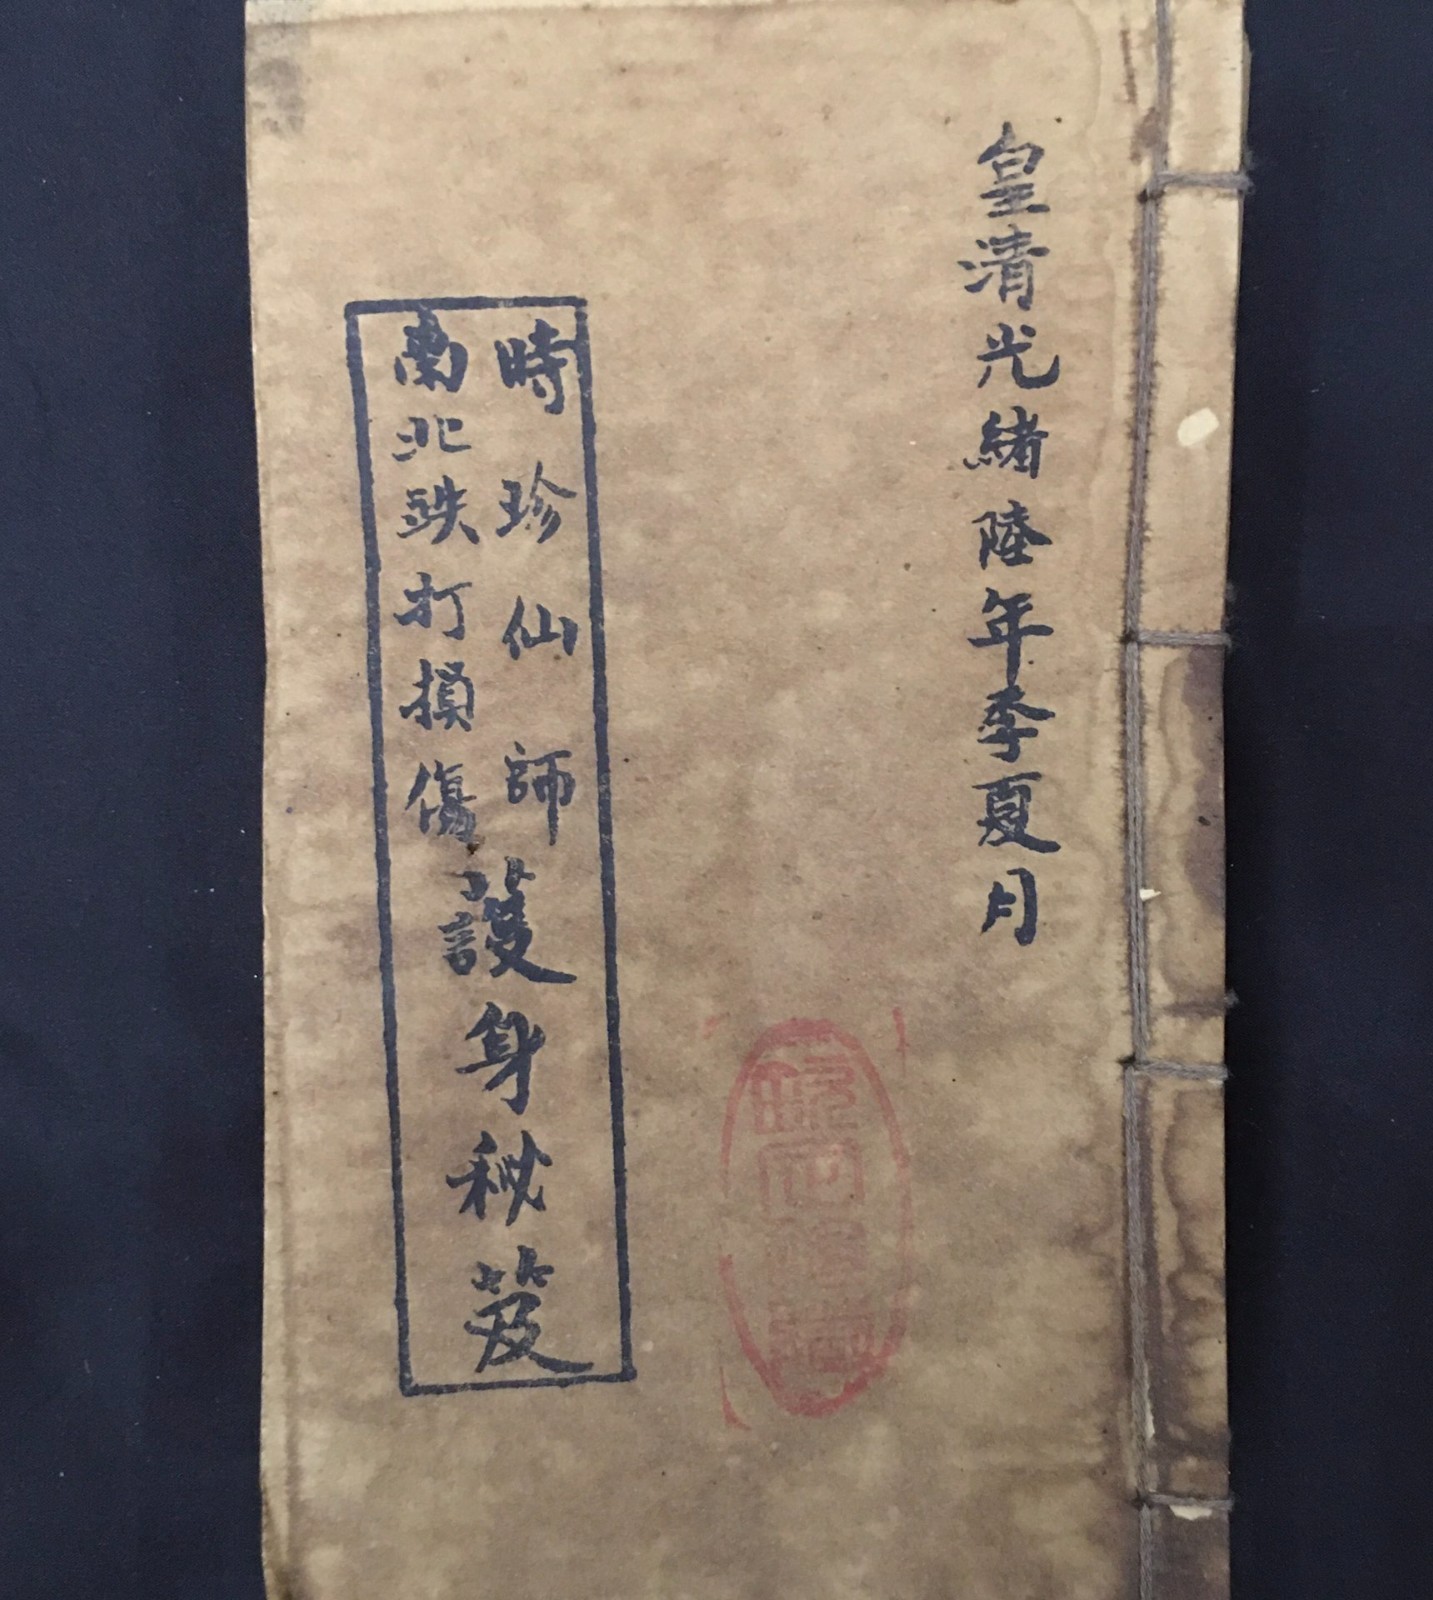 皇清光緒陸年季夏月
時珍仙師
南北跌打損傷
護身秘笈